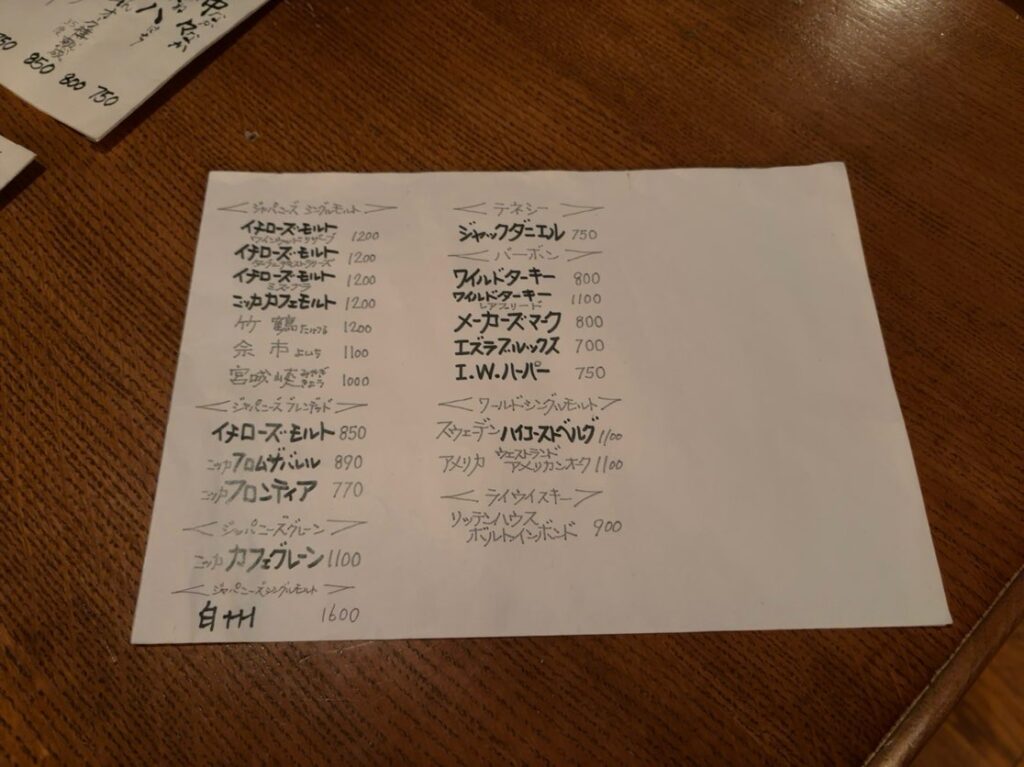 <ジャパニーズ シングルモルト>
イチローズ・モルト 1200
ワインウッドリザーブ
イチローズ・モルト 1200
ダブルディスティラリーズ
イチローズ・モルト 1200
ミズナラ
ニッカ カフェモルト 1200
竹 鶴 たけつる 1200
余 市 よいち 1100
宮城峡 みやぎきょう 1000
<ジャパニーズ ブレンデッド>
イチローズ・モルト 850
ニッカ フロムザバレル 890
ニッカ フロンティア 770
<ジャパニーズグレーン>
ニッカ カフェグレーン 1100
<ジャパニーズシングルモルト>
白州 1600
<テネシー>
ジャックダニエル 750
<バーボン>
ワイルドターキー 800
ワイルドターキー 1100
レアブリード
メーカーズマーク 800
エズラブルックス 700
I.W.ハーパー 750
<ワールド・シングルモルト>
スウェーデン ハイコーストベルグ 1100
アメリカ ウェストランド
アメリカンオーク 1100
<ライウイスキー>
リッテンハウス
ボルトインボンド 900
850 800 750